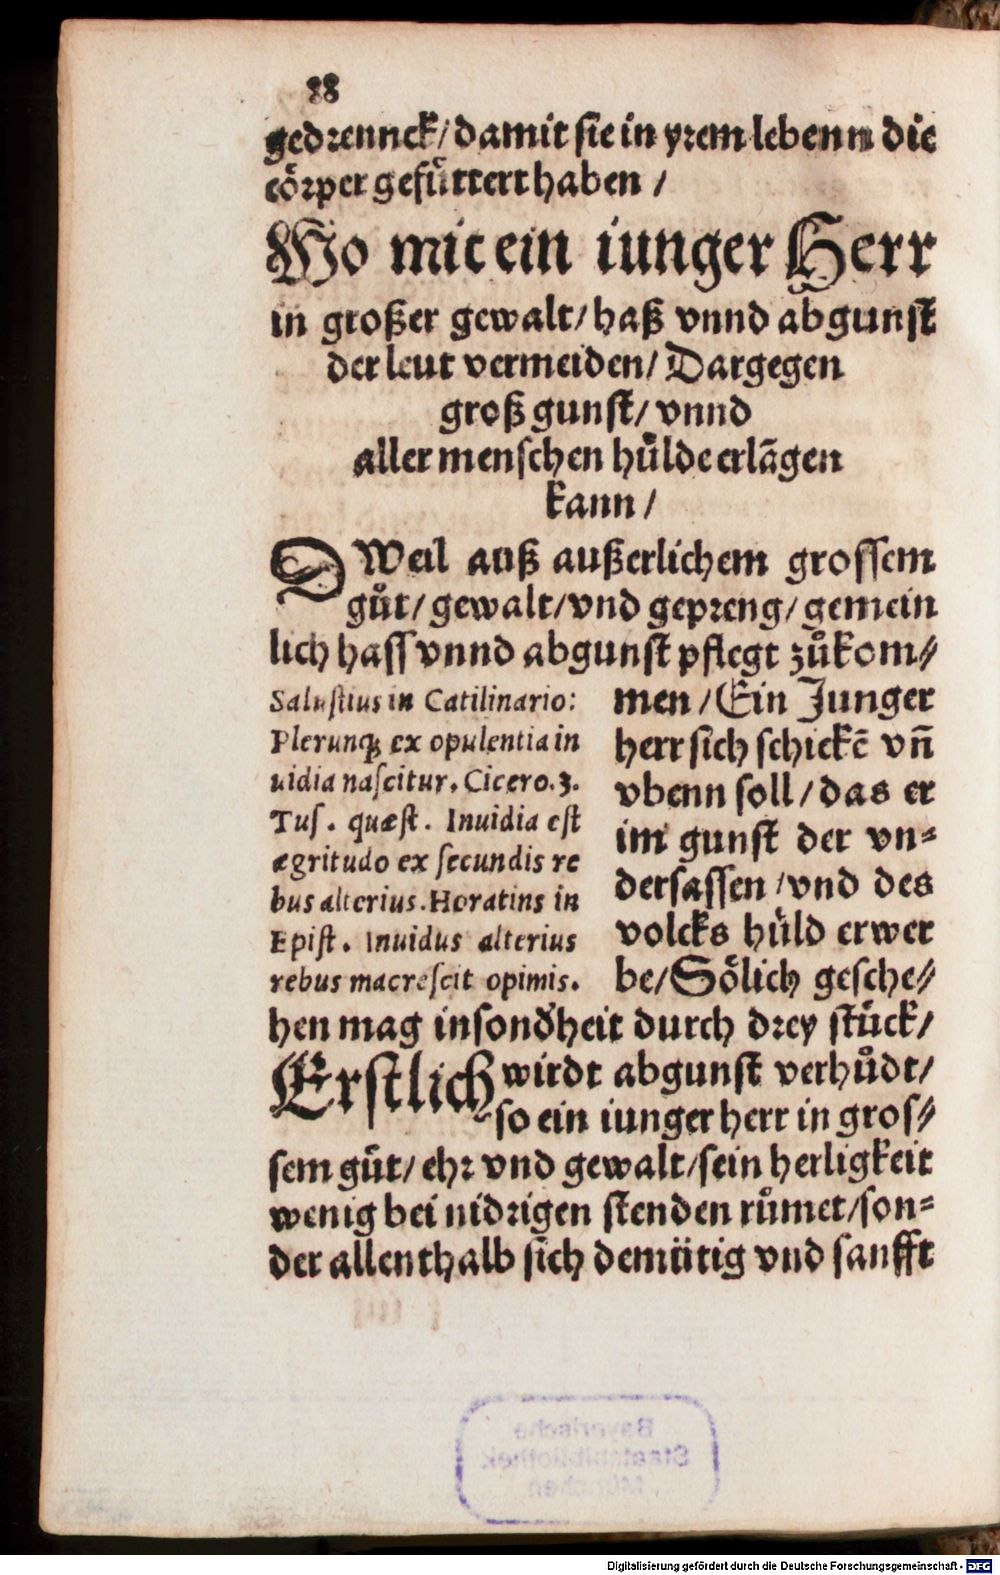 88
gedrennck/damit sie in yrem lebenn die
cörper gefüttert haben /
Wo mit ein iunger Herr
in großer gewalt/haß vnnd abgunst
der leut vermeiden/Dargegen
groß gunst/vnnd
aller menschen hůlde erlãgen
kann/
DWeil auß außerlichem grossem
gůt/gewalt/vnd gepreng/gemein
lich hass vnnd abgunst pflegt zůkom⸗
men/Ein Junger
herr sich schickẽ vñ
vbenn soll/das er
im gunst der vn⸗
dersassen/vnd des
volcks hůld erwer
be/Sölich gesche⸗
Salustius in Catilinario:
Plerunq; ex opulentia in
uidia nascitur. Cicero.3.
Tus. quæst. Inuidia est
ægritudo ex secundis re
bus alterius. Horatius in
Epist. Inuidus alterius
rebus macrescit opimis.
hen mag insonđheit durch drey stůck/
Erstlich wirdt abgunst verhůdt/
so ein iunger herr in gros⸗
sem gůt/ehr vnd gewalt/sein herligkeit
wenig bei nidrigen stenden růmet/son⸗
der allenthalb sich demütig vnd sanfft
Bayerische
Staatsbibliothek
München
Digitalisierung gefördert durch die Deutsche Forschungsgemeinschaft - DFG